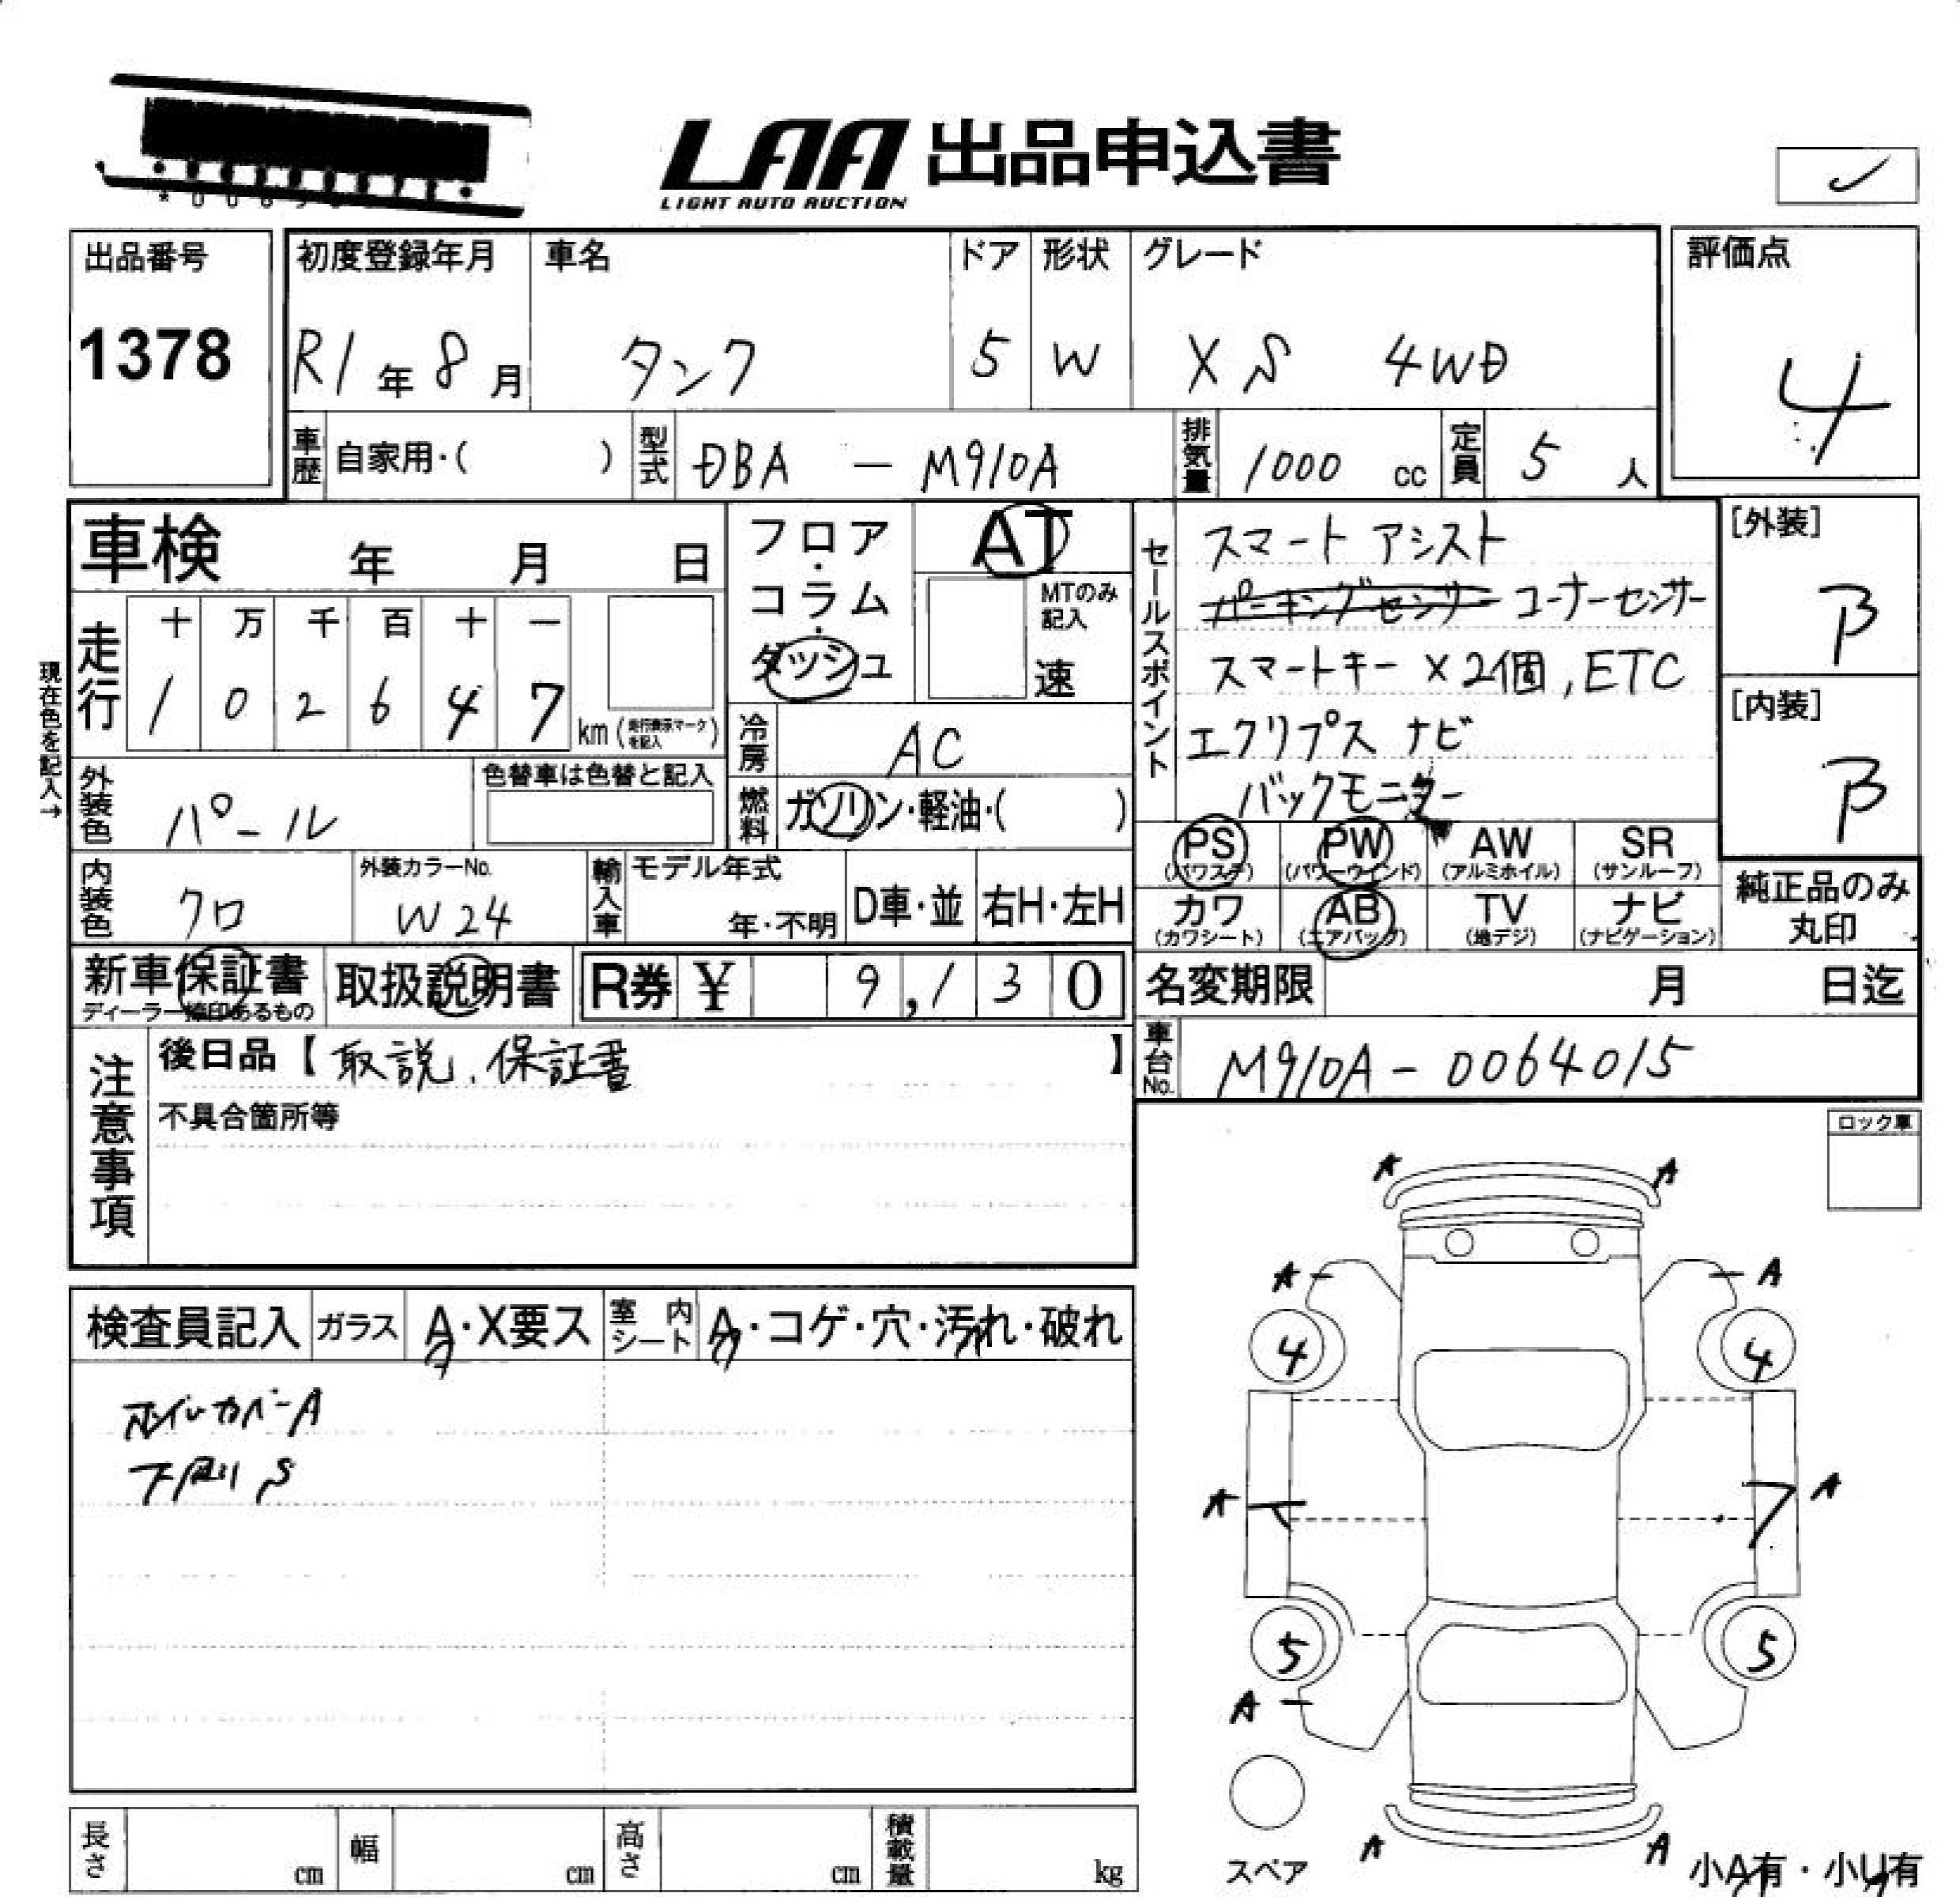 LAA 出品申込書
LIGHT AUTO AUCTION
出品番号
1378
初度登録年月 車名 ドア 形状 グレード
R1年8月 タンク 5 W XS 4WD
評価点
4
車歴 自家用・( ) 型式 DBA - M910A 排気量 1000 cc 定員 5 人
車検 年 月 日
フロア・コラム・ダッシュ
AT
MTのみ記入
速
走行 十 万 千 百 十 一
1 0 2 6 4 7 km (走行表示マークを記入)
現在色を記入→
冷房 AC
燃料 ガソリン・軽油・( )
外装色 パール
色替車は色替と記入
内装色 クロ
外装カラーNo. W24
輸入車 モデル年式 年・不明 D車・並 右H・左H
セールスポイント
スマートアシスト
パーキングセンサー コーナーセンサー
スマートキー×2個, ETC
エクリプス ナビ
バックモニター
[外装]
B
[内装]
B
PS (パワステ) PW (パワーウインド) AW (アルミホイル) SR (サンルーフ)
カワ (カワシート) AB (エアバッグ) TV (地デジ) ナビ (ナビゲーション)
純正品のみ丸印
新車保証書 ディーラー捺印あるもの
取扱説明書
R券 ¥ 9,130
名変期限 月 日迄
車台No. M910A-0064015
注意事項
後日品【取説、保証書】
不具合箇所等
ロック車
検査員記入 ガラス A・X要ス 室内シート A・コゲ・穴・汚れ・破れ
ホイルカバーA
下廻りS
A A
A A
4 4
A A
5 5
A
A A
スペア
小A有・小U有
長さ cm 幅 cm 高さ cm 積載量 kg